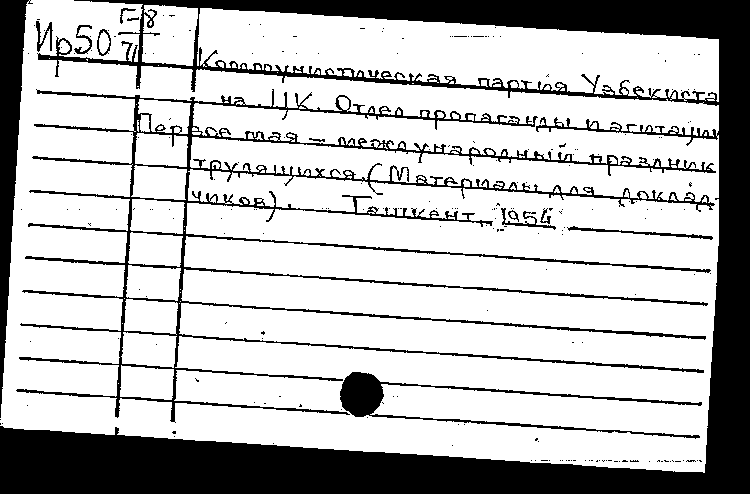 Г-8
Ир50 71
Коммунистическая партия Узбекиста
на. ЦК. Отдел пропаганды и агитации
Первое мая – международный праздник
трудящихся. (Материалы для доклад-
чиков). Ташкент, 1954